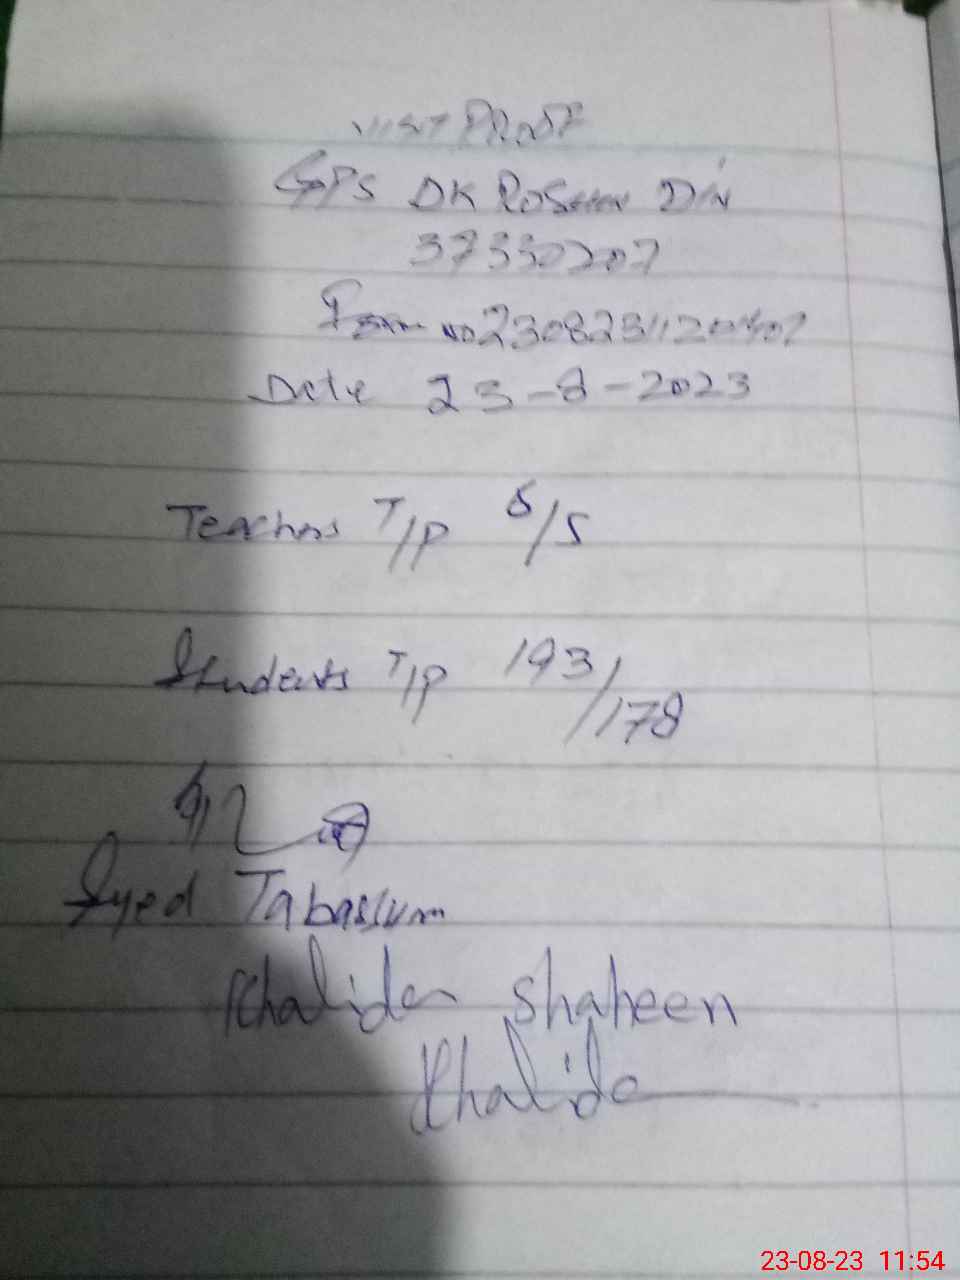 VISIT PROOF
GPS DK ROSHAN DIN
37330207
Form NO 230823112040
Date 23-8-2023
Teachers T/P 5/5
Students T/P 193/178
Syed Tabassum
Khalida shaheen
Khalida
23-08-23 11:54